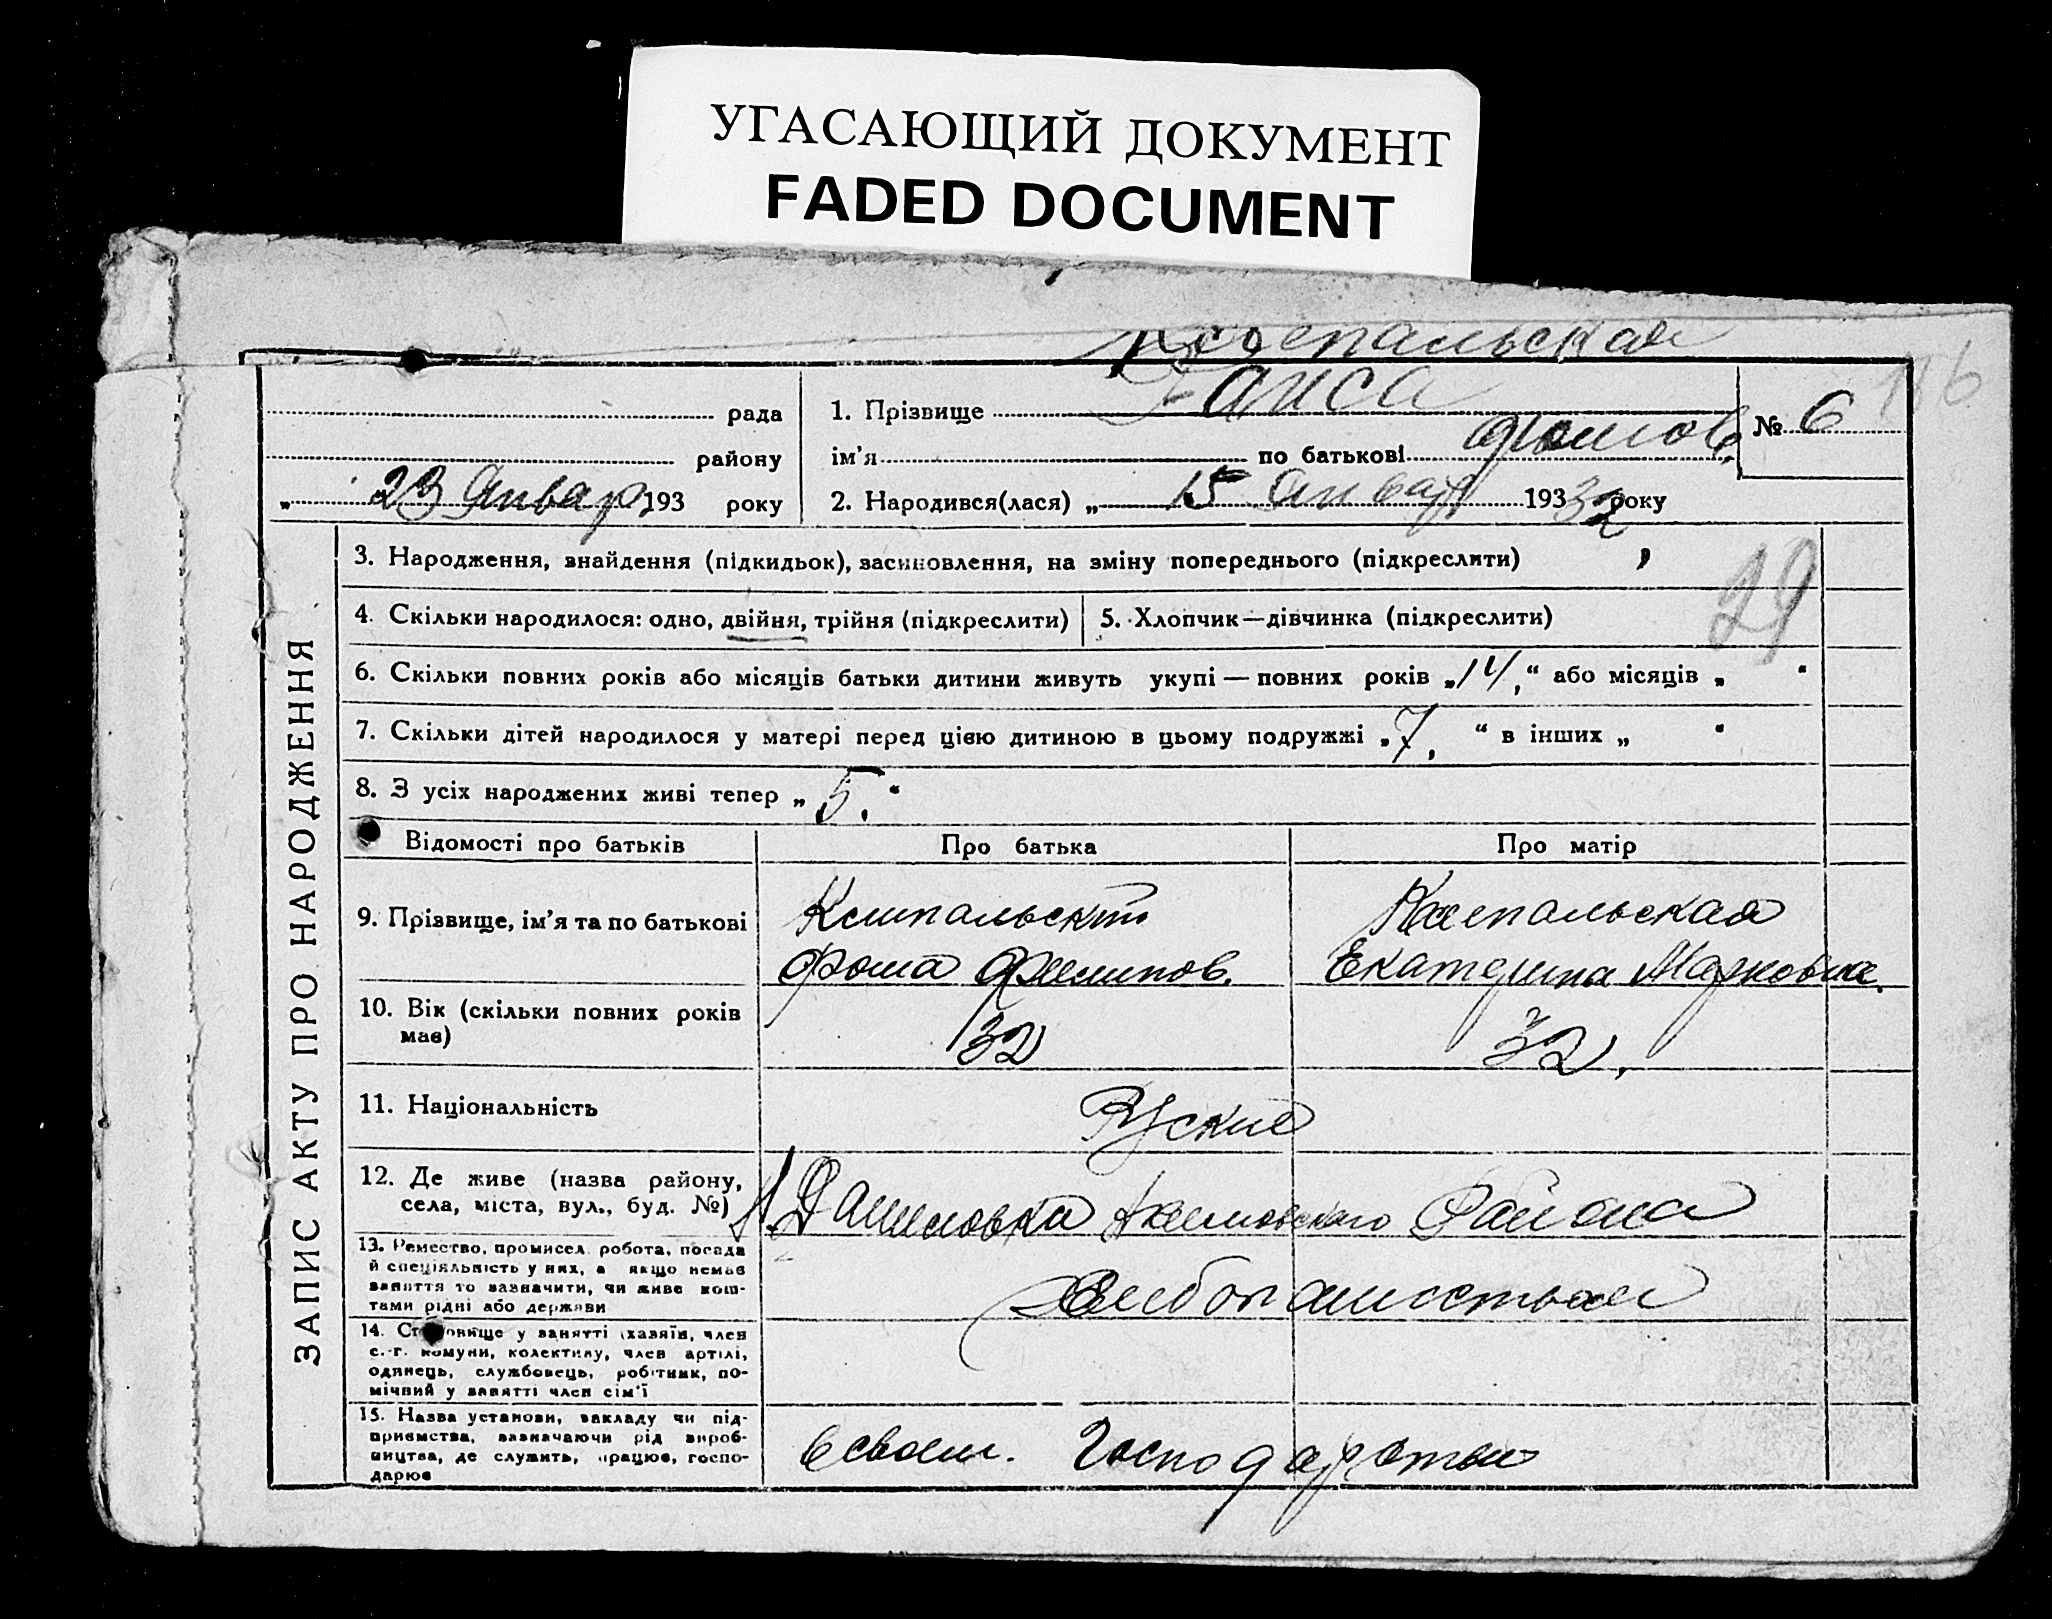 УГАСАЮЩИЙ ДОКУМЕНТ
FADED DOCUMENT
116
Таиса
рада
1. Прізвище
№ 6
району
ім'я по батькові Фомов.
„ 23 Январ 193 року
2. Народився(лася) „ 15 Январ 193 32 року
ЗАПИС АКТУ ПРО НАРОДЖЕННЯ
3. Народження, знайдення (підкидьок), засиновлення, на зміну попереднього (підкреслити)
29
4. Скільки народилося: одно, двійня, трійня (підкреслити)
5. Хлопчик—дівчинка (підкреслити)
6. Скільки повних років або місяців батьки дитини живуть укупі — повних років „14,“ або місяців „ “
7. Скільки дітей народилося у матері перед цією дитиною в цьому подружжі „7, “ в інших „ “
8. З усіх народжених живі тепер „ 5. “
Відомості про батьків
Про батька
Про матір
9. Прізвище, ім'я та по батькові
Фома Филипов.
Екатерина Марковна.
10. Вік (скільки повних років має)
32
32,
11. Національність
Руские
12. Де живе (назва району,
села, міста, вул., буд. №)
Даниловка Акимовского Района
13. Ремество, промисел, робота, посада
й спеціяльність у них, а якщо немає
заняття то зазначити, чи живе кош-
тами рідні або держави
Хлебопашеством
14. Становище у занятті (хазяїн, член
с.-г. комуни, колективу, член артілі,
одинець, службовець, робітник, по-
мічний у занятті член сім'ї
15. Назва установи, закладу чи під-
приємства, зазначаючи рід вироб-
ництва, де служить, працює, госпо-
дарює
в своем. Господарстви